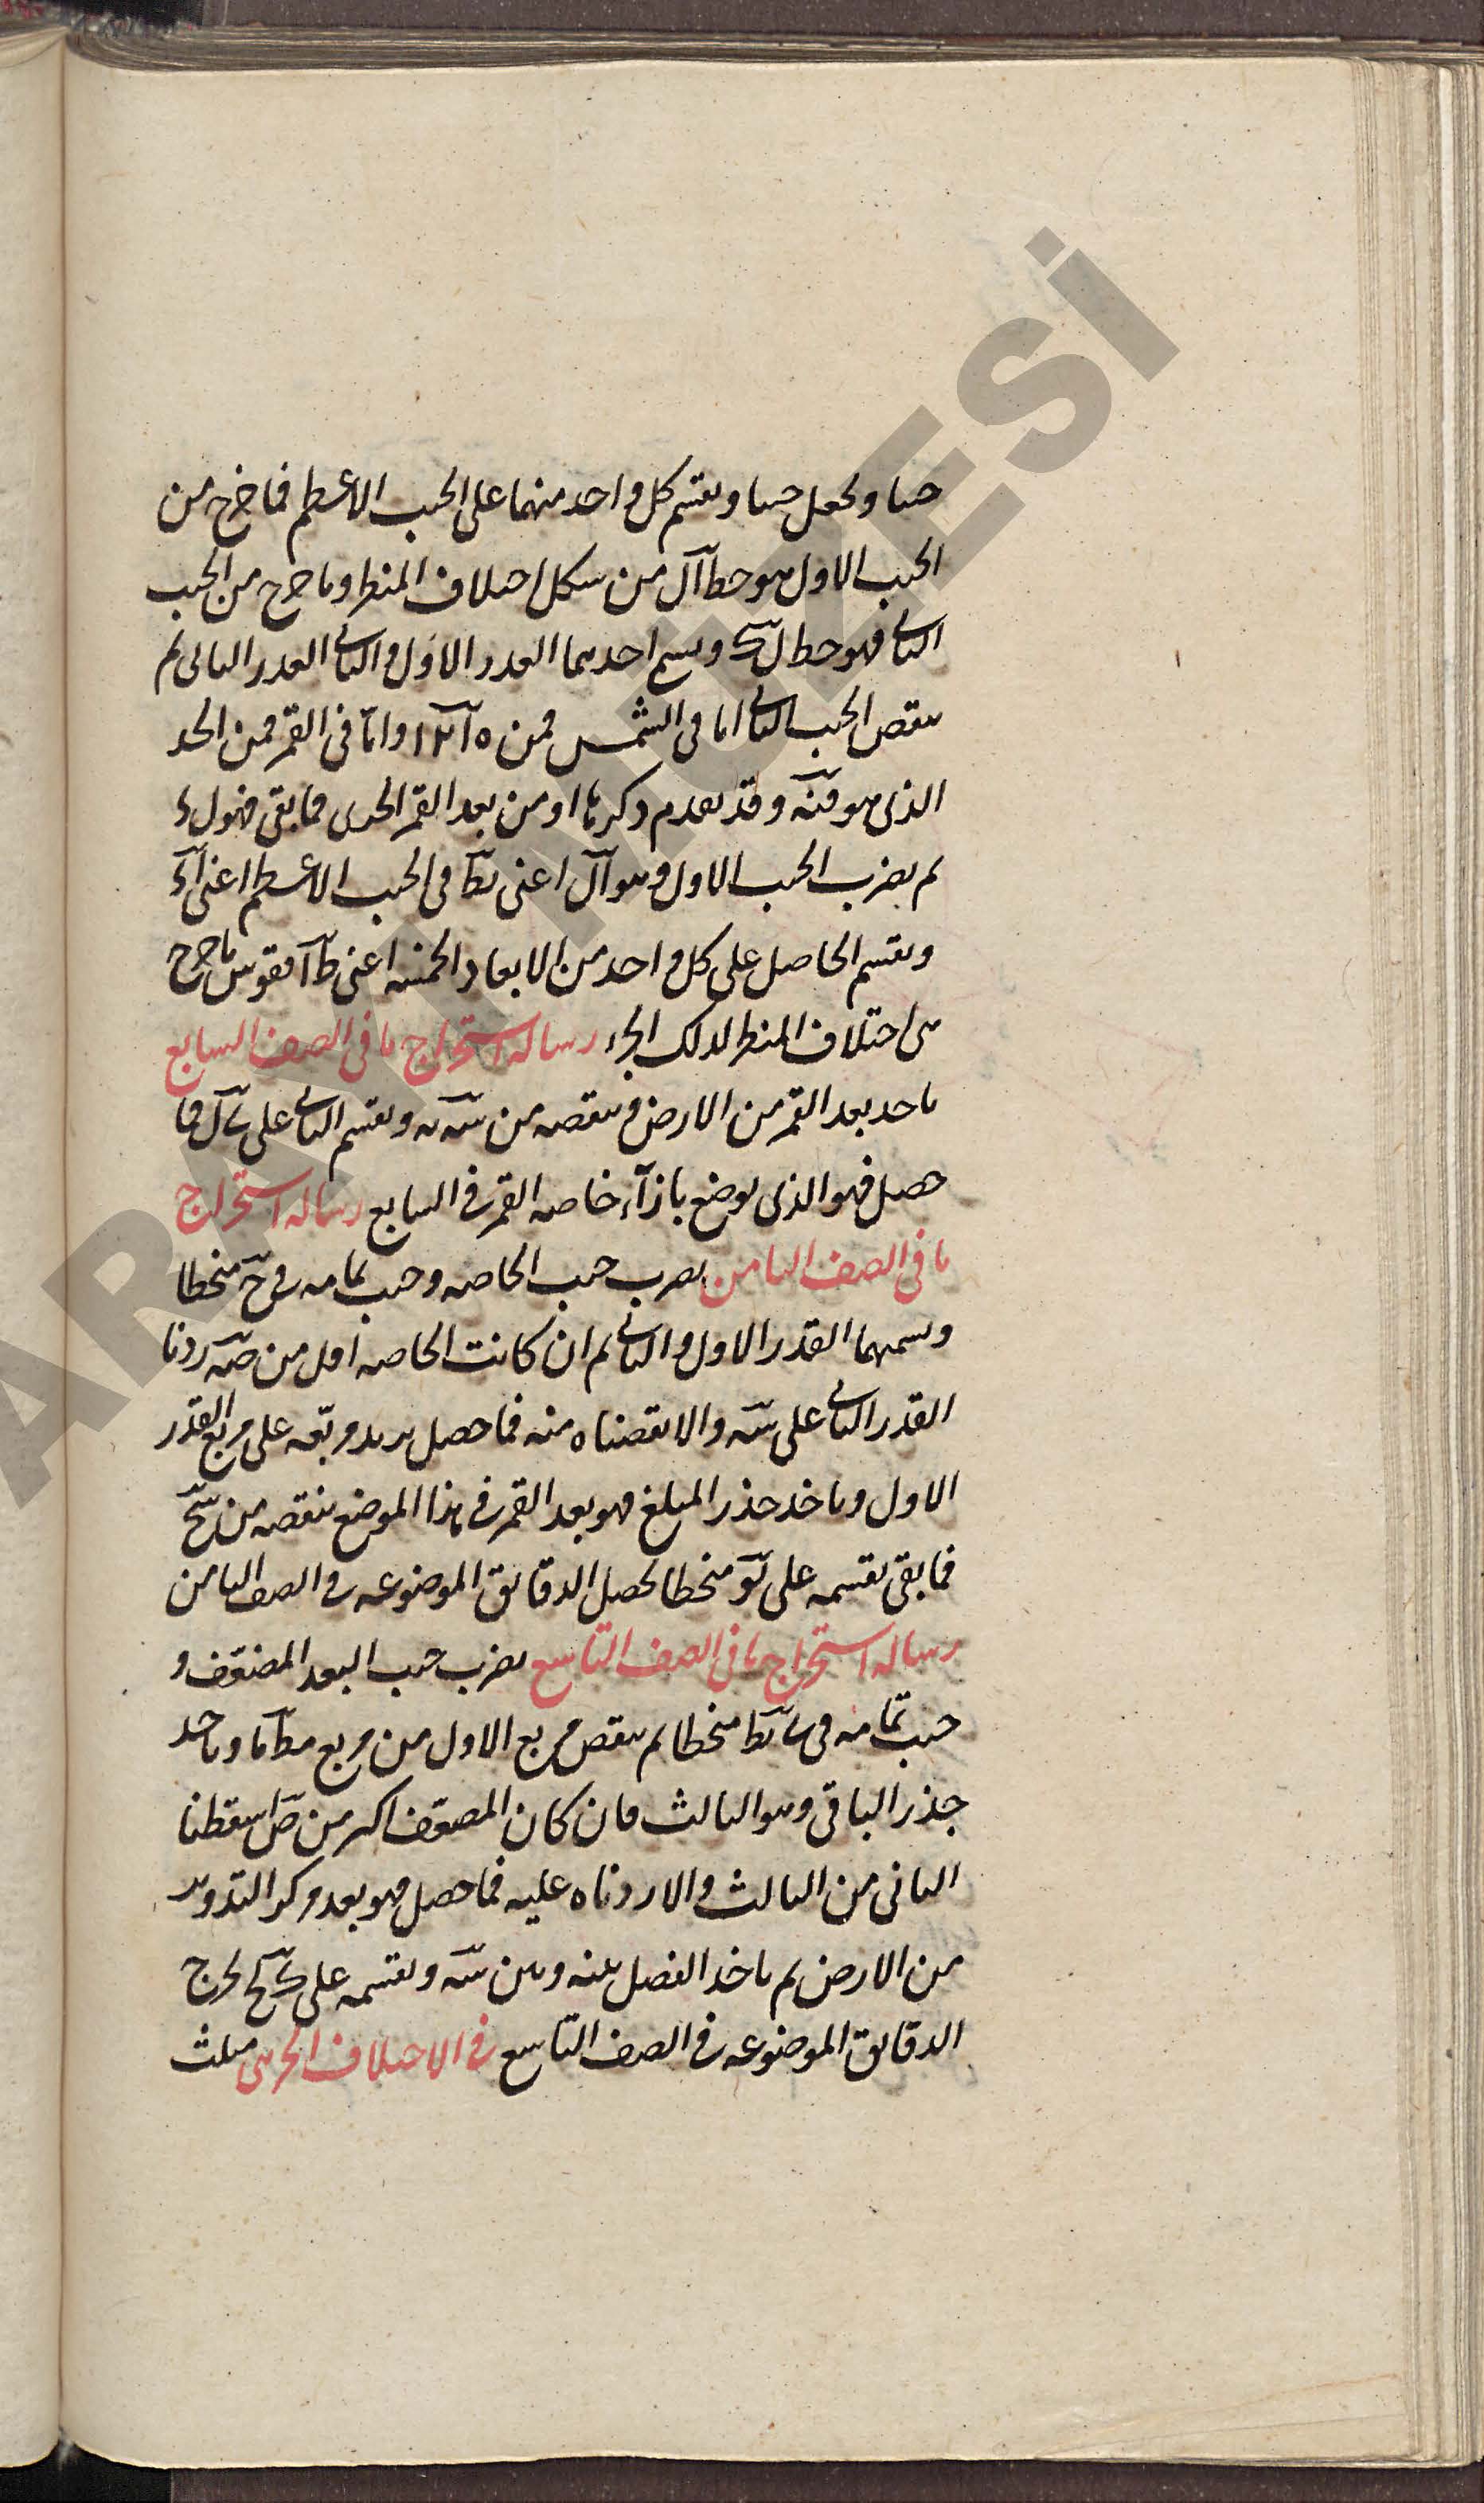 حسا ونجعل حسا ونقسم كل واحد منهما على الجيب الاعظم فما خرج من
الجيب الاول هو خط اَل من شكل اختلاف المنظر وما خرج من الجيب
الثانى فهو خط ونسمى احدهما القدر الاول والثانى القدر الثانى ثم
ننقص الجيب الثانى اما فى الشمس فمن واما فى القمر فمن الحد
الذى هو فيه وقد تقدم ذكرها او من بعد القمر الجزى فما بقى فهو
ثم نضرب الجيب الاول وهو اَل اعنى فى الجيب الاعظم اعنى
ونقسم الحاصل على كل واحد من الابعاد الخمسه اعنى فقوس ما خرج
هى اختلاف المنظر لذلك الجزء رساله استخراج ما فى الصف السابع
ناخذ بعد القمر من الارض وننقصه من ونقسم الباقى على فما
حصل فهو الذى يوضع بازآء خاصه القمر فى السابع رساله استخراج
ما فى الصف الثامن نضرب جيب الخاصه وجيب تمامه فى منحطا
ونسميهما القدر الاول والثانى ثم ان كانت الخاصه اقل من ص زدنا
القدر الثانى على والا نقصناه منه فما حصل نزيد مربعه على مربع القدر
الاول وناخذ جذر المبلغ فهو بعد القمر فى هذا الموضع ننقصه من
فما بقى نقسمه على منحطا يحصل الدقائق الموضوعه فى الصف الثامن
رساله استخراج ما فى الصف التاسع نضرب جيب البعد المضعف و
جيب تمامه فى منحطا ثم ننقص مربع الاول من مربع وناخذ
جذر الباقى وهو الثالث فان كان المضعف اكثر من ص اسقطنا
الثانى من الثالث والا زدناه عليه فما حصل فهو بعد مركز التدوير
من الارض ثم ناخذ الفضل بينه وبين ونقسمه على يخرج
الدقائق الموضوعه فى الصف التاسع فى الاختلاف الجزئى مثلث